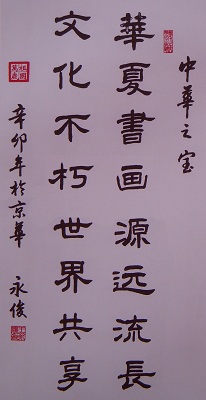 中華之宝
華夏書画源远流長
文化不朽世界共享
辛卯年於京華 永俊